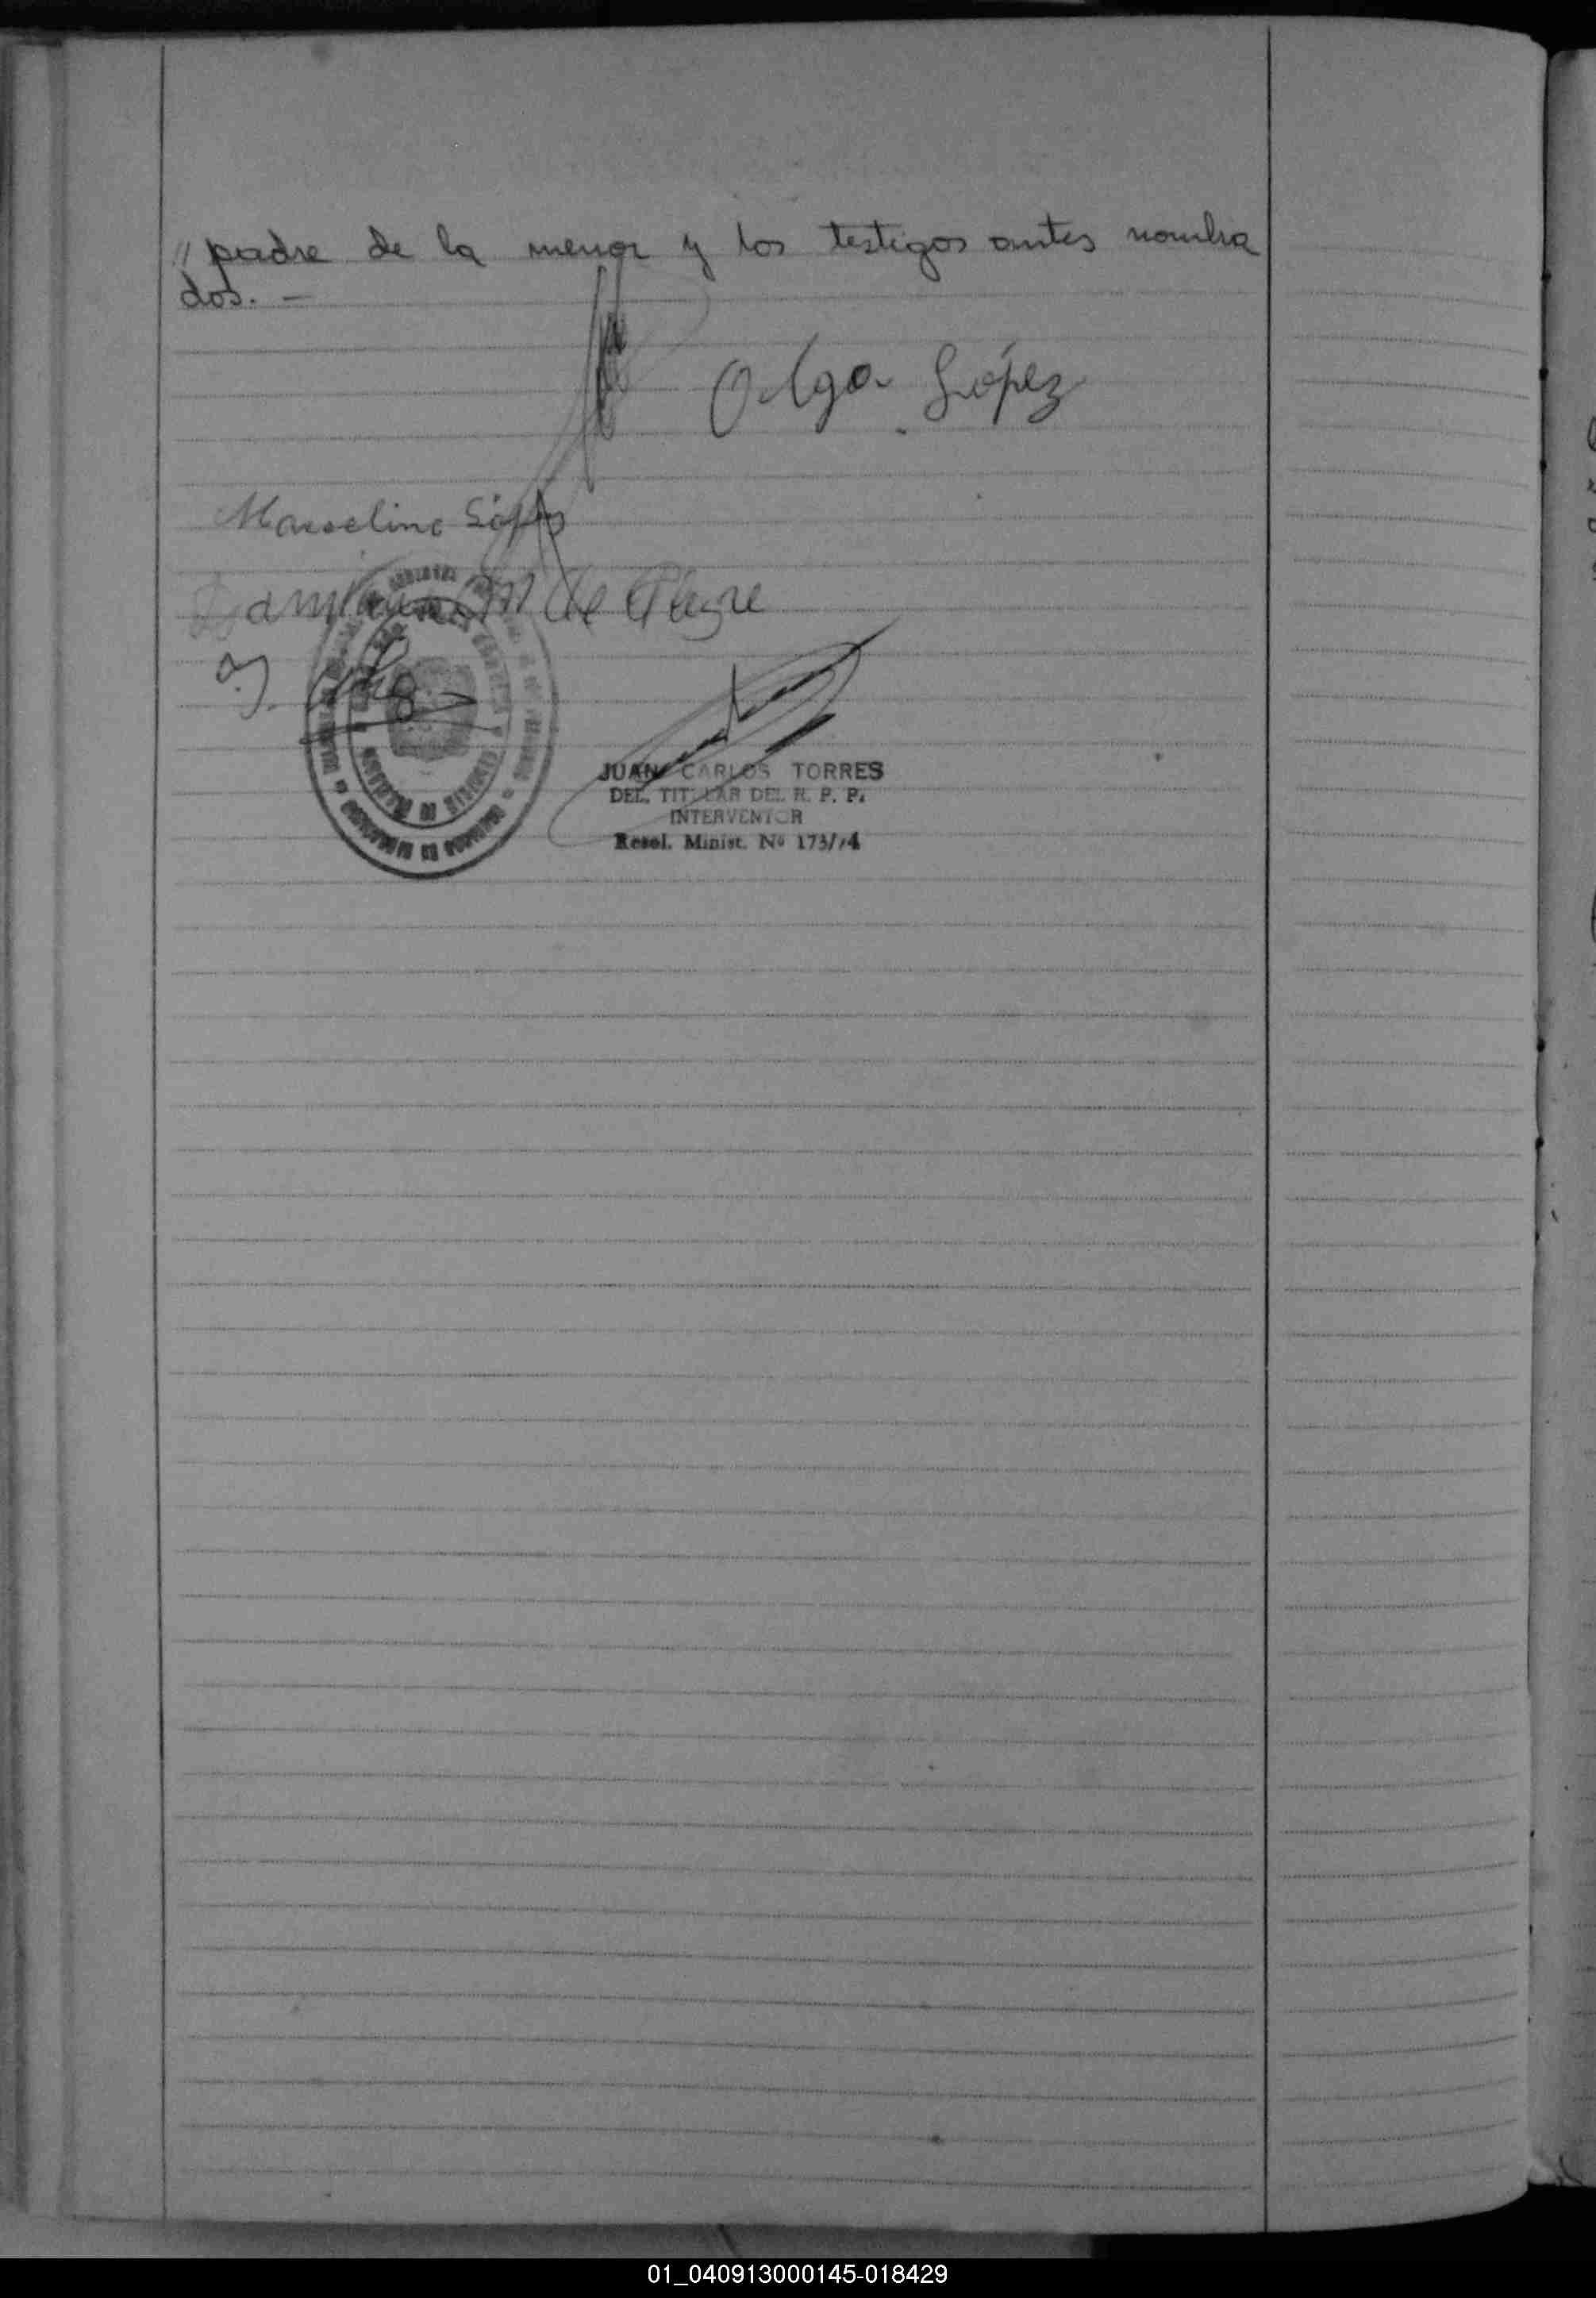 // padre de la menor y los testigos antes nombra
dos. —
Olga López
Marselino López
Damiana M de Alegre
JUAN CARLOS TORRES
DEL. TITULAR DEL R. P. P.
INTERVENTOR
Resol. Minist. Nº 173/74
01_040913000145-018429